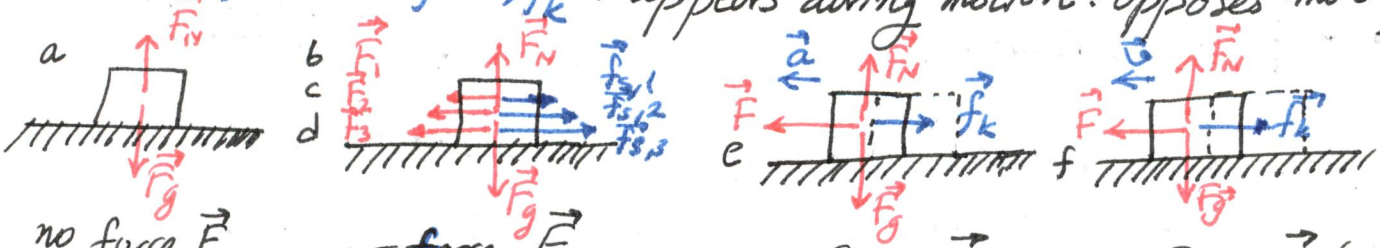 f⃗k appears during motion. opposes
a F⃗N F⃗g
b c d F⃗1 F⃗2 F⃗3 F⃗N F⃗g f⃗s,1 f⃗s,2 f⃗s,3
e a⃗ F⃗ F⃗N F⃗g f⃗k
f v⃗ F⃗ F⃗N F⃗g f⃗k
no force F⃗
force F⃗